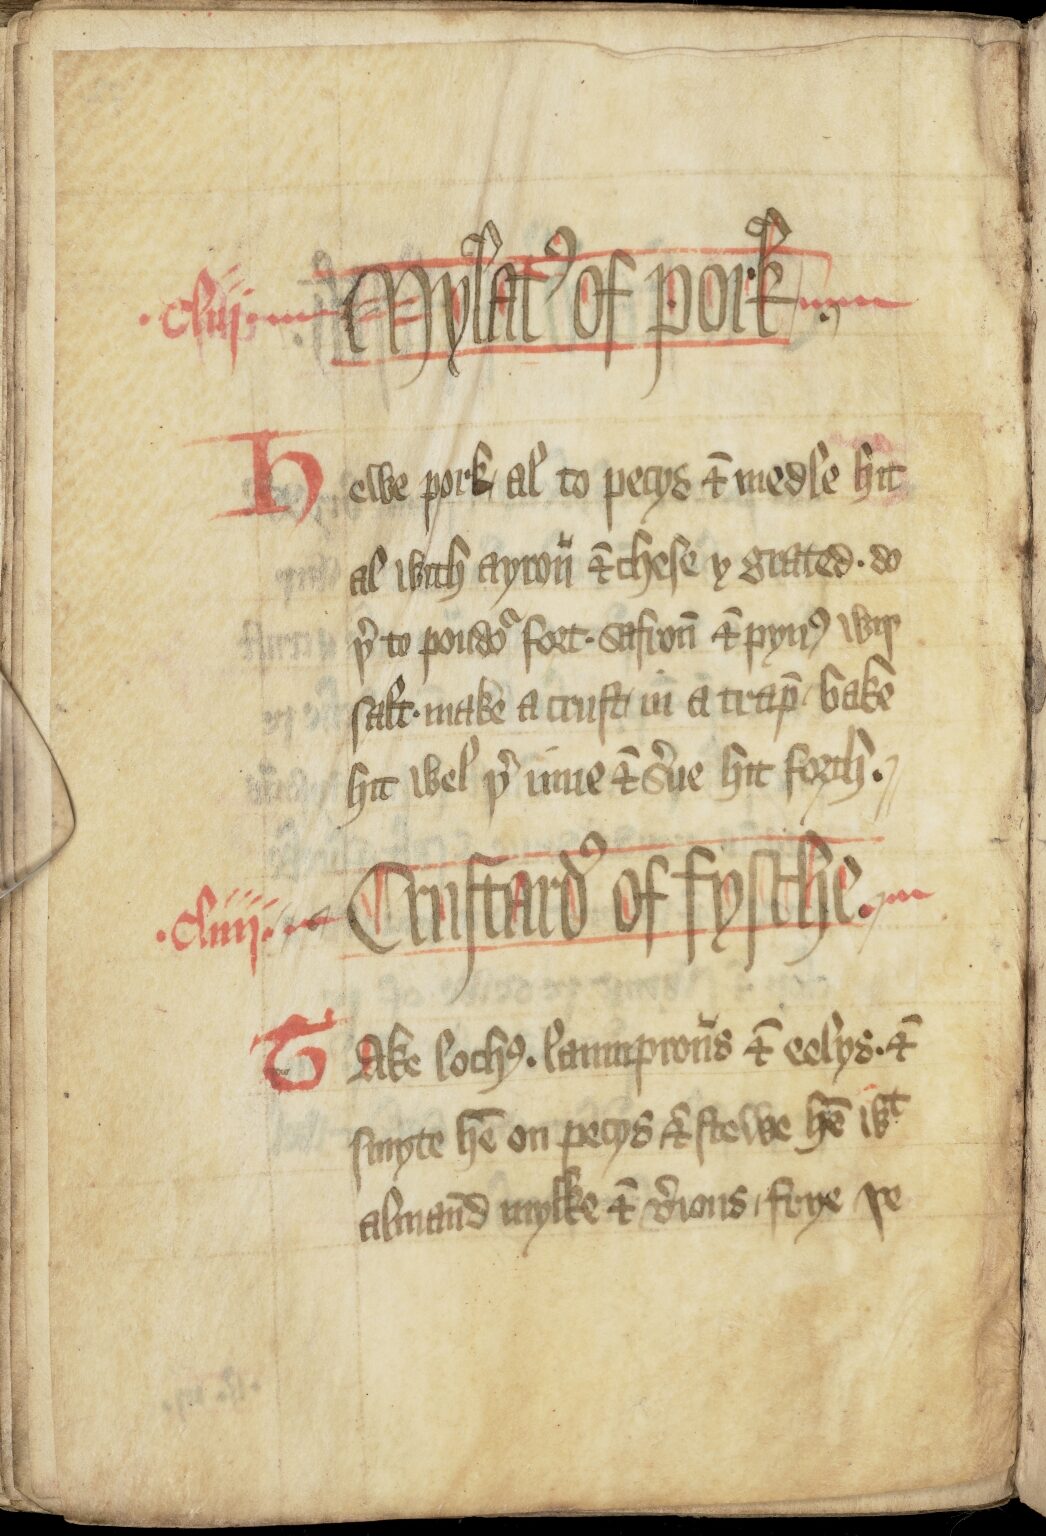 .clııj. Mylat᷒ of pork.
Hewe pork al to pecys ⁊ medle hit
al with ayroū ⁊ chese y grated. do
þ͛ to poudoᷓ fort. safroū ⁊ pyn᷒ wiþ
salt. make a crust in a trap̄. bake
hit wel þ͛ inne ⁊ s͛ue hit forth.
.clıııj. Crustard᷒ of fysche.
TAke loch᷒. laumproūs ⁊ eelys. ⁊
smyte hē on pecys ⁊ stewe hē wᵗ
almaūd mylke ⁊ v͛ious, frye þe